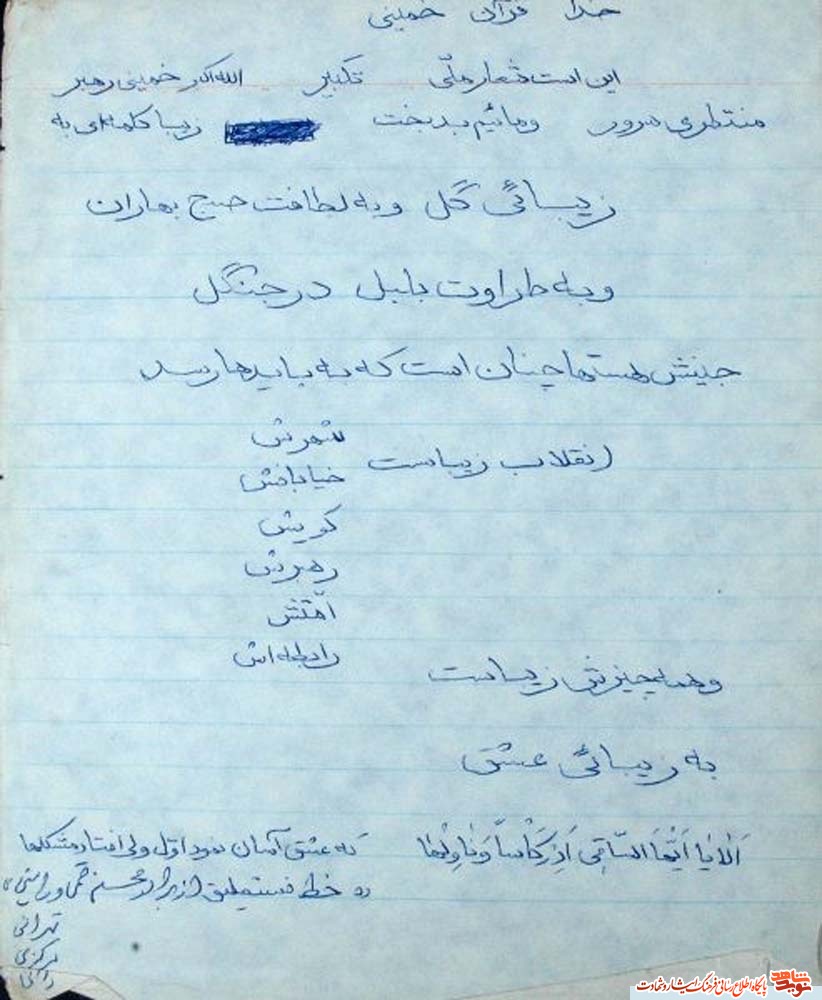 خدا قرآن خمینی
این است شعار ملّی تکبیر الله اکبر خمینی رهبر
منتظری سرور و مائیم بدبخت زیبا کلمه‌ای به
زیبائی گل و به لطافت صبح بهاران
و به طراوت بلبل در جنگل
جنبش هستها چنان است که به بایدها رسد
انقلاب زیباست شهرش
خیابانش
کویش
رهبرش
امتش
رابطه اش
و همه چیزش زیباست
به زیبائی عشق
اَلا یا اَیُّها السّاقی اَدِر کَاْساً وَ ناوِلها که عشق آسان نمود اوّل ولی افتاد مشکلها
به خط نستعلیق از برادر محسن
تهرانی
مرکزی
نوید شاهد پایگاه اطلاع رسانی فرهنگ ایثار و شهادت